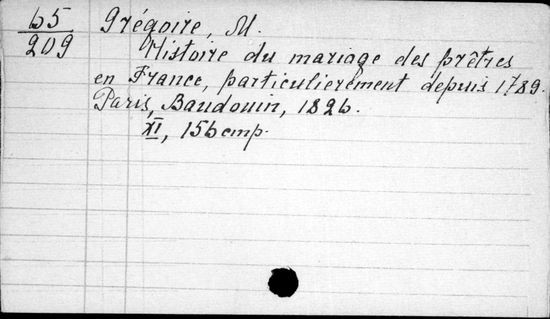 65 Grégoire, M.
209 Histoire du mariage des prêtres
en France, particulièrement depuis 1789.
Paris, Baudouin, 1826.
XI, 156 cmp.